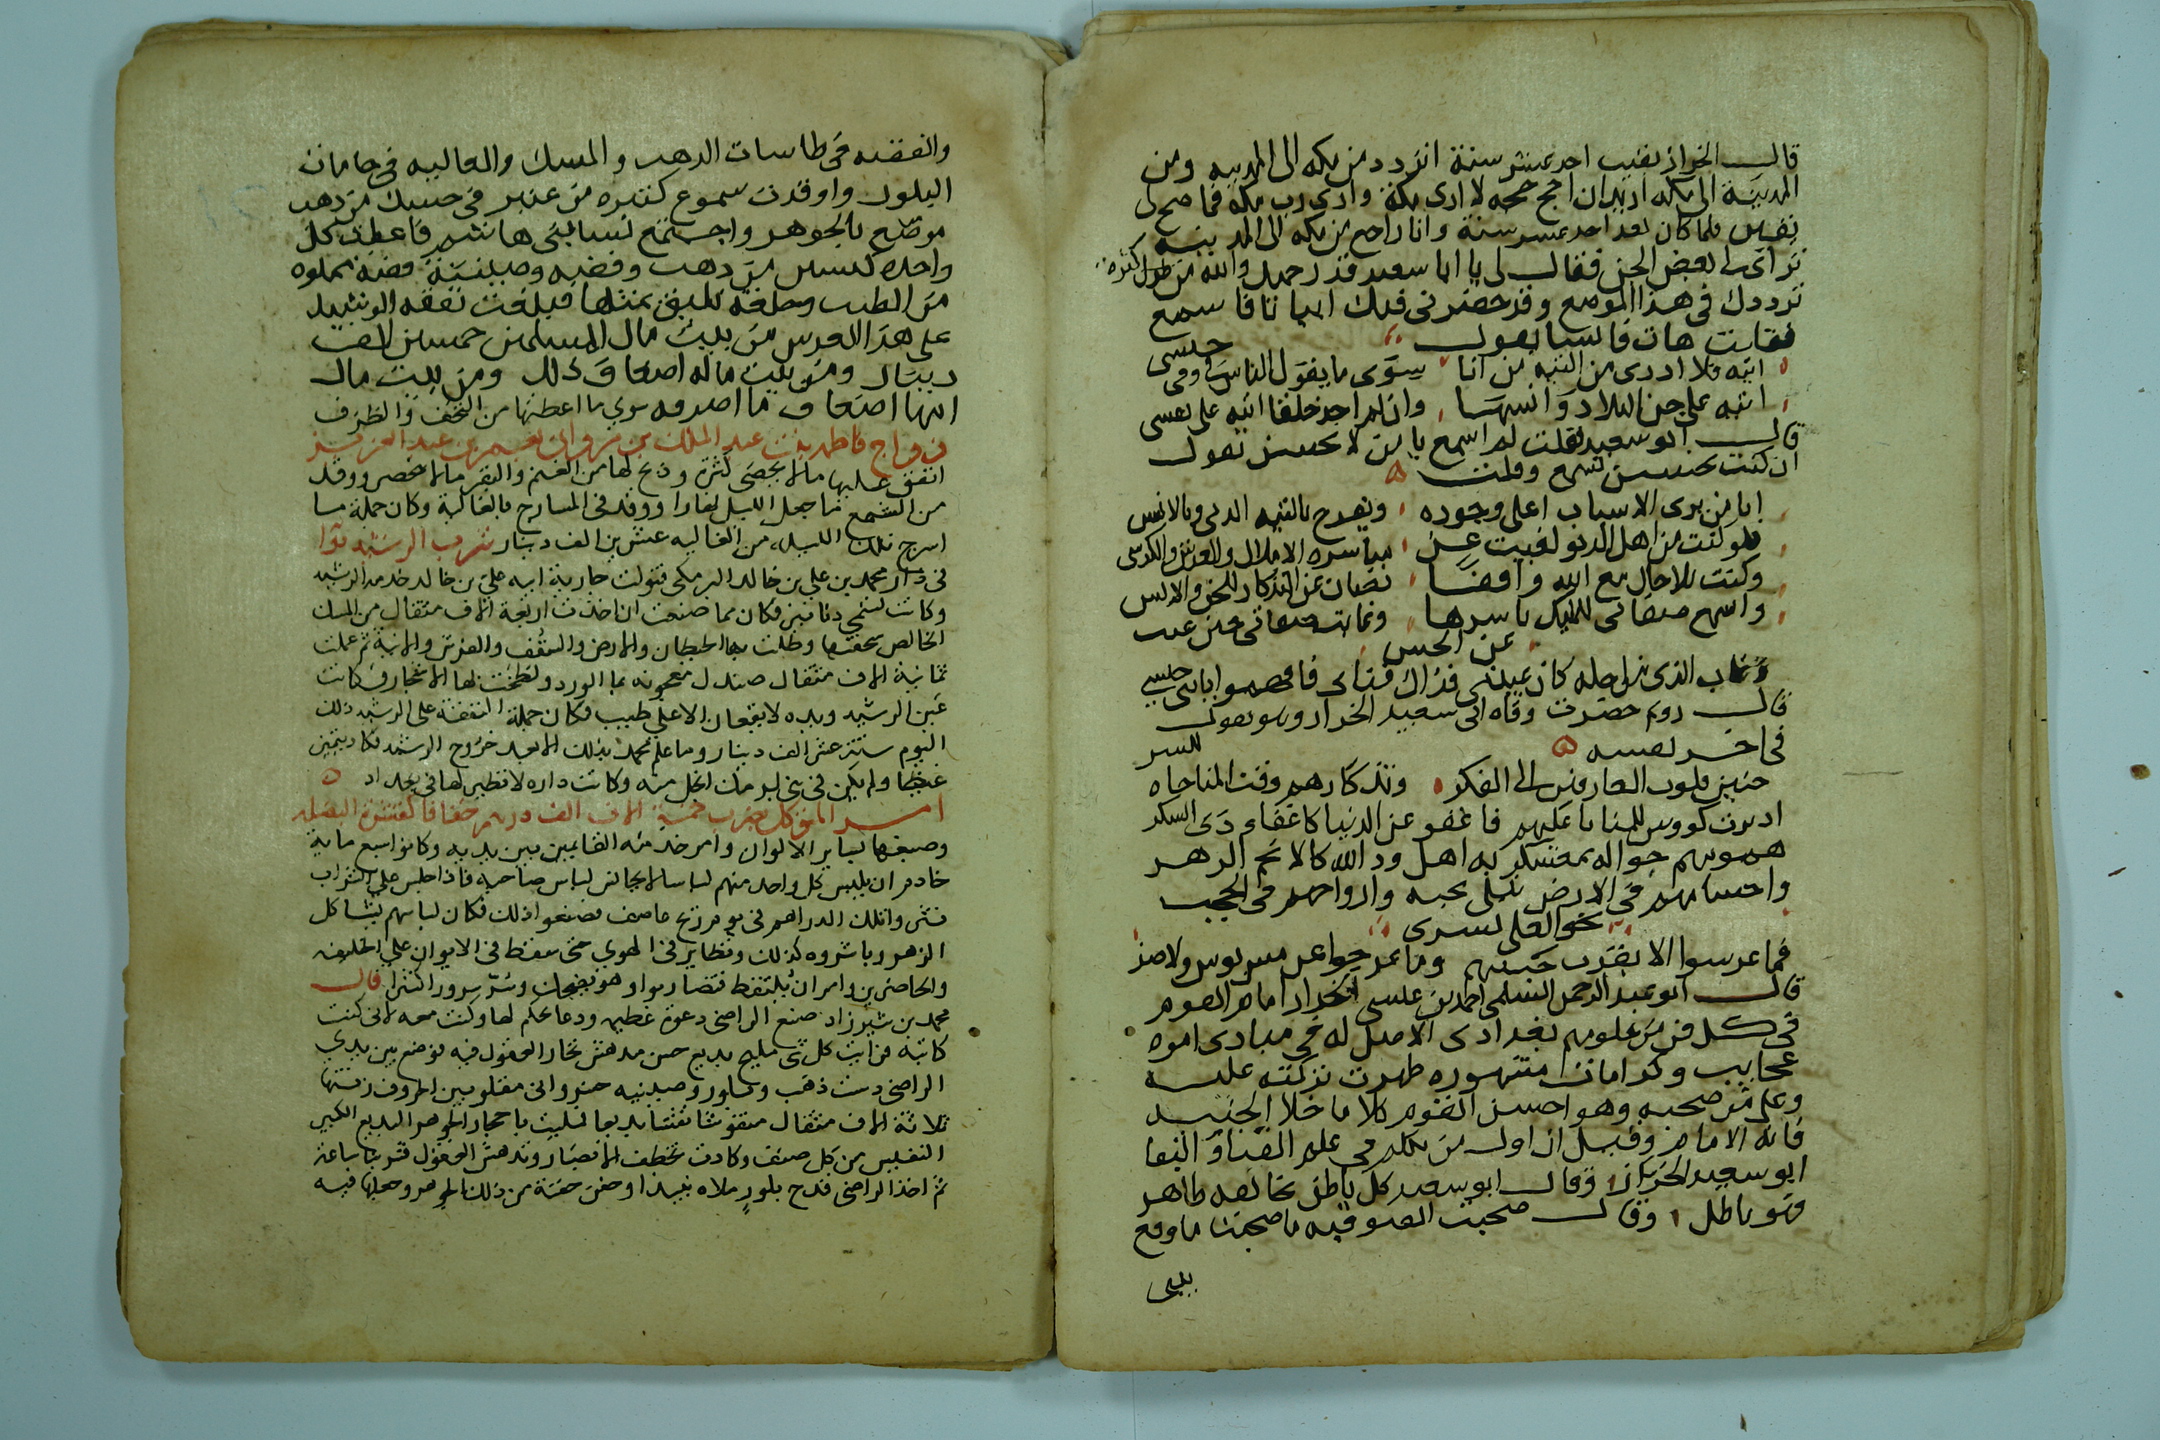 قال الخراز بقيت احد عشر سنة اتردد من مكه الى المدينه ومن
المدينة الى مكه اريد ان احج حجه لا ارى مكة وارى رب مكه فما صح لى
نفس فلما كان بعد احد عشر سنة وانا راجع من مكه الى المدينه
تراى لى بعض الجن فقال لى يا ابا سعيد قد رحمك والله من طول كثره
ترددك فى هذا الموضع وقد حضرنى فيك ابياتا فاسمع
فقلت هات فانشا يقول
اتيه فلا ادرى من التيه من انا سوى ما يقول الناس فى وفى جنسى
اتيه على جن البلاد وانسها وان لم اجد خلقا اتيه على نفسى
قال ابو سعيد فقلت له اسمع يا من لا يحسن يقول
ان كنت تحسن تسمع وقلت
ايا من يرى الاسباب اعلى وجوده ويفرح بالتيه الدنى وبالانس
فلو كنت من اهل الدنو لغبت عن مباشره الاملاك والعرش والكرسى
وكنت بلا حال مع الله واقفا تصان عن التذكار للجن والانس
واسهم صفاتى للمليك باسرها وغابت صفاتى حين غبت
عن الحس
وغاب الذى من اجله كان غيبتى فذاك فناى فافهموا يا بنى جنسى
قال رويم حضرت وفاه ابى سعيد الخراز وهو يقول
فى اخر نفسه
حنين قلوب العارفين الى الذكر وتذكارهم وقت المناجاه للسر
اديرت كووس للمنايا عليهم فاغفو عن الدنيا كاغفاء ذى السكر
همومهم جواله بمعسكر به اهل ود الله كالانجم الزهر
واجسامهم فى الارض تبلى بحبه وارواحهم فى الحجب
نحو العلى تسرى
فما عرسوا الا بقرب حبيبهم وما عرجوا عن مس بوس ولا ضر
قال ابو عبد الرحمن السلمى احمد بن عيسى الخراز امام القوم
فى كل فن من علومهم بغدادى الاصل له فى مبادى امره
عجايب وكرامات مشهوره ظهرت بركته عليه
وعلى من صحبه وهو احسن القوم كلاما خلا الجنيد
فانه الامام وقيل ان اول من تكلم فى علم الفناو البقا
ابو سعيد الخراز وقال ابو سعيد كل باطن يخالفه ظاهر
فهو باطل وقال صحبت الصوفيه ما صحبت ما وقع
بينى
والفضه فى طاسات الذهب والمسك والغاليه فى جامات
البلور واوقدت شموع كثيره من عنبر فى حسك من ذهب
موضع بالجوهر واجتمع نسا بنى هاشم فاعطت كل
واحده كيسين من ذهب وفضه وصينية فضة مملوه
من الطيب وخلعة فبلغت نفقه الرشيد
على هذا العرس من بيت مال المسلمين خمسين الف الف
دينار ومن بيت ماله اضعاف ذلك ومن بيت مال
ابنها اضعاف ما اصرفه سوى ما اعطتها من التحف والظرف
زواج فاطمه بنت عبد الملك بن مروان لعمر بن عبد العزيز
انفق عليها ما لا يحصى كثرة وذبح لها من الغنم والبقر ما لا يحصر ووقد
من الشمع ما جعل الليل نهارا ووقد فى المسارج بالغالية وكان جملة ما
اسرج تلك الليله من الغاليه عشرين الف دينار شرب الرشيد يوما
فى دار محمد بن علي بن خالد البرمكى فتولت جارية ابيه على بن خالد خدمه الرشيد
وكانت تسمى دنانير فكان مما صنعت ان اخذت اربعة الاف مثقال من المسك
الخالص سحقتها وطلت بها الحيطان والارض والسقف والفرش والانية ثم عملت
ثمانية الاف مثقال صندل معجونه بما الورد ولطخت لها الاشجار فكانت
عين الرشيد ويده لا يقعان الا على طيب فكان جملة النفقة على الرشيد ذلك
اليوم ستة عشر الف دينار وما علم محمد بذلك الا بعد خروج الرشيد فكاد يتميز
غيظا ولم يكن فى بنى برمك ابخل منه وكانت داره لا نظير لها فى بغداد
امر المتوكل بضرب خمسة الاف الف درهم خفافا كقشرة البصله
وصبغها بساير الالوان وامر خدمه القايمين بين يديه وكانوا سبع ماية
خادم ان يلبس كل واحد منهم لباسا لا يجانس لباس صاحبه فاذا جلس على الشراب
نثروا تلك الدراهم فى يوم ريح عاصف فصنعوا ذلك فكان لباسهم يشاكل
الزهر وباشروه كذلك وتطاير فى الهوى حتى سقط فى الايوان على الخليفه
والحاضرين وامر ان يلتقط فتضاربوا وهو يضحك وسر سرورا كثيرا قال
محمد بن شيرزاد صنع الراضى دعوة عظيمه ودعا بجكم لها وكنت معه لانى كنت
كاتبه فرايت كل شى مليح بديع حسن مدهش تحار العقول فيه فوضع بين يدي
الراضى دست ذهب وبلور وصينيه خسروانى مقلوبين الحروف زنتها
ثلاثة الاف مثقال منقوشا نقشا بديعا بالجوهر البديع الكبير
النفيس من كل صنف وكادت تخطف الابصار وتدهش العقول فشربنا ساعة
ثم اخذ الراضى قدح بلور ملاه نبيذا وحفن حفنة من ذلك الجوهر وجعلها فيه